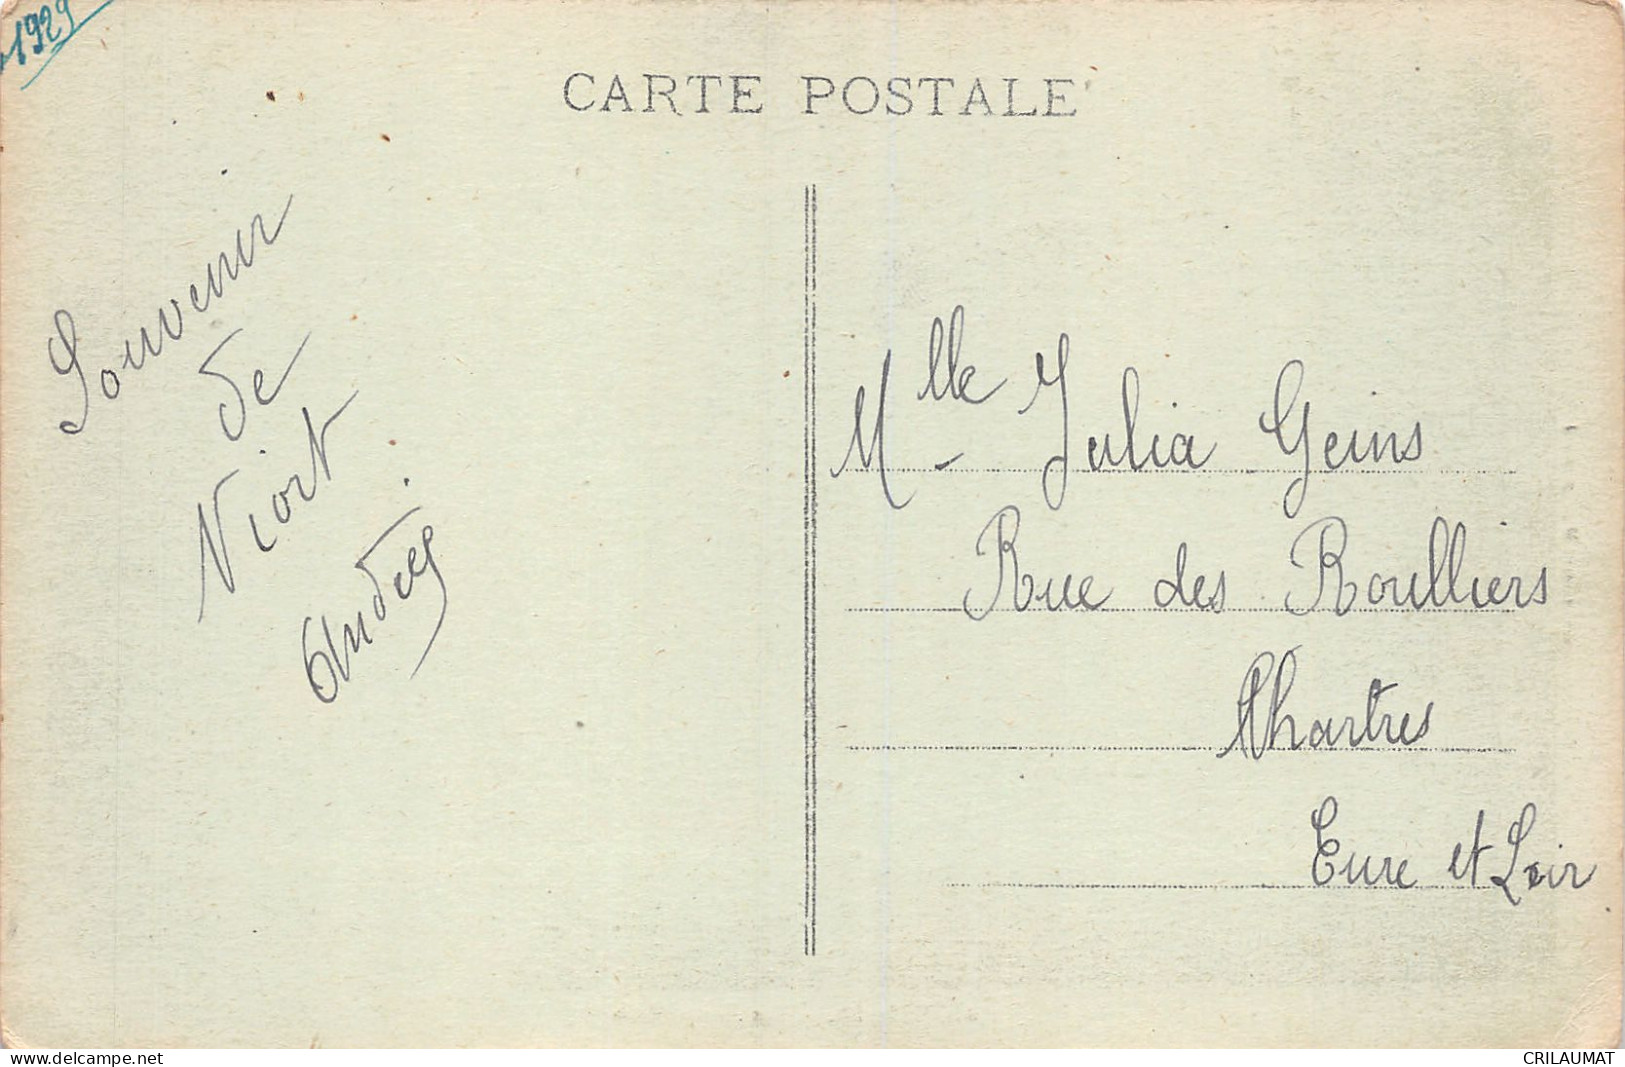 1929
CARTE POSTALE
Souvenir
de
Niort
Andrée
Mlle Julia Geins
Rue des Roulliers
Chartres
Eure et Loir
www.delcampe.net
CRILAUMAT